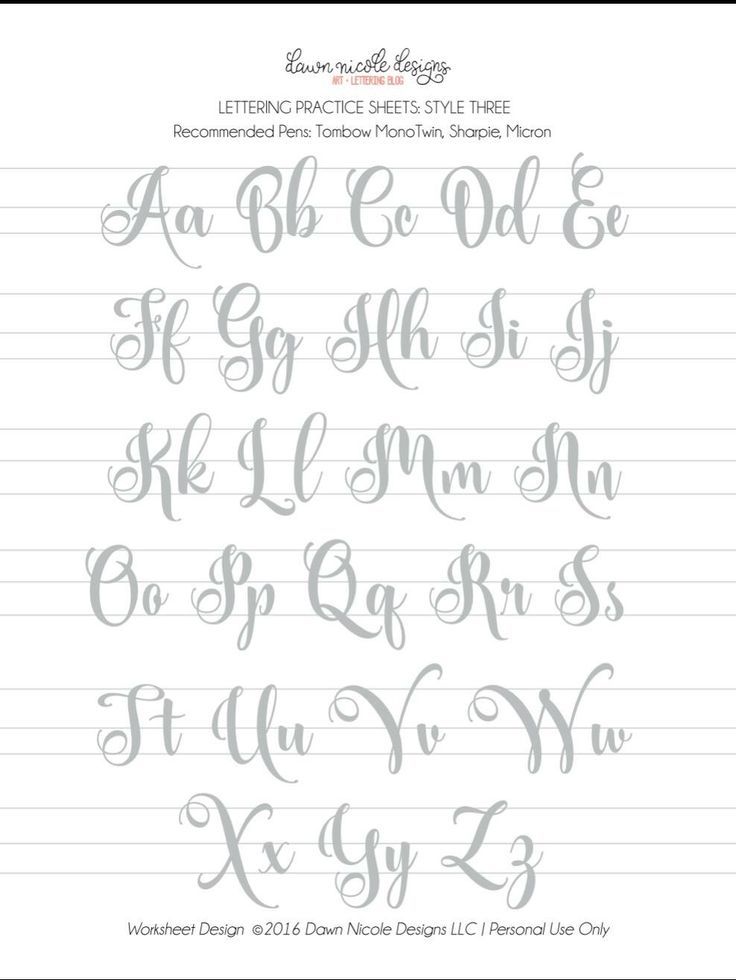 dawn nicole designs
ART + LETTERING BLOG
LETTERING PRACTICE SHEETS: STYLE THREE
Recommended Pens: Tombow MonoTwin, Sharpie, Micron
Aa Bb Cc Dd Ee
Ff Gg Hh Ii Jj
Kk Ll Mm Nn
Oo Pp Qq Rr Ss
Tt Uu Vv Ww
Xx Yy Zz
Worksheet Design ©2016 Dawn Nicole Designs LLC | Personal Use Only